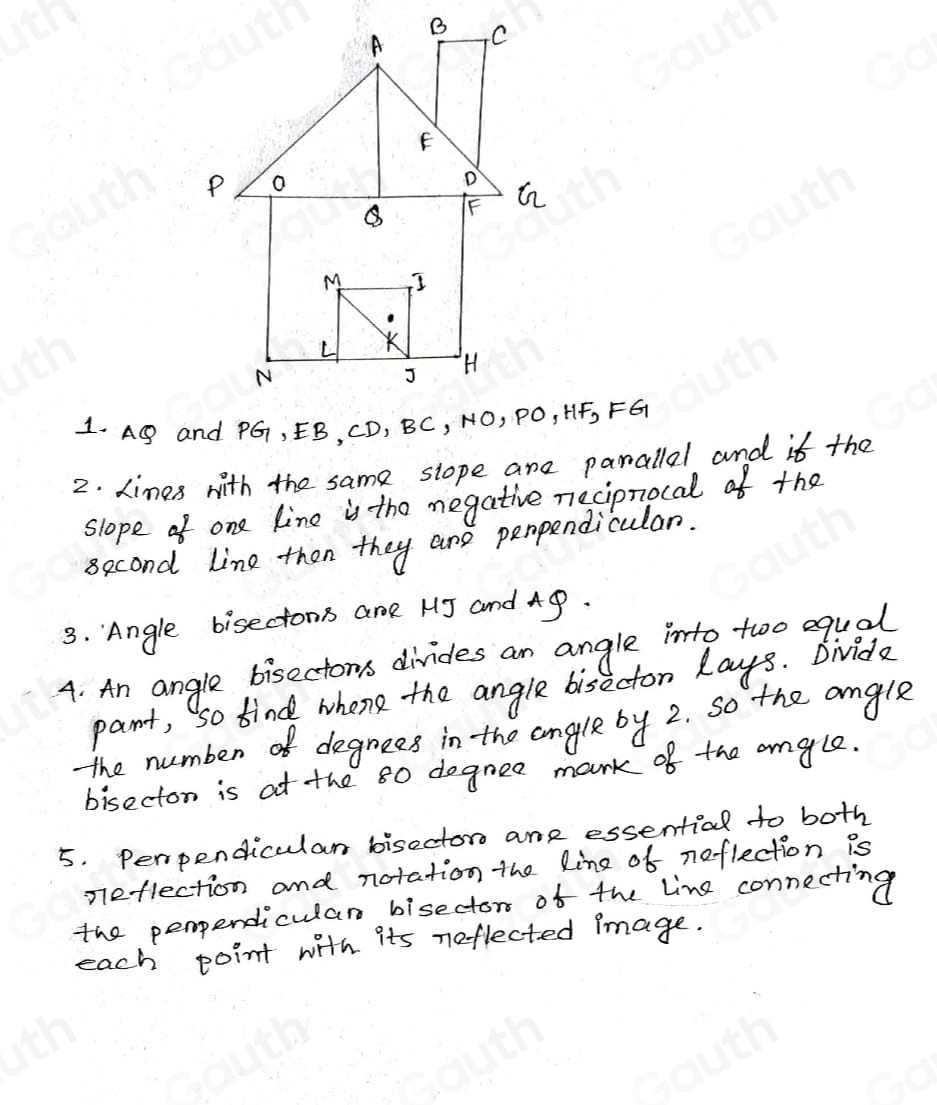 B
C
A
E
P
O
D
G
Q
F
M
I
K
L
N
J
H
1. AQ and PG, EB, CD, BC, NO, PO, HF, FG
2. Lines with the same slope are parallel and if the
slope of one line is the negative reciprocal of the
second line then they are perpendicular.
3. Angle bisectors are MJ and AQ.
4. An angle bisectors divides an angle into two equal
part, so find where the angle bisector lays. Divide
the number of degrees in the angle by 2. so the angle
bisector is at the 80 degree mark of the angle.
5. Perpendicular bisectors are essential to both
reflection and rotation the line of reflection is
the perpendicular bisector of the line connecting
each point with its reflected image.
Gauth